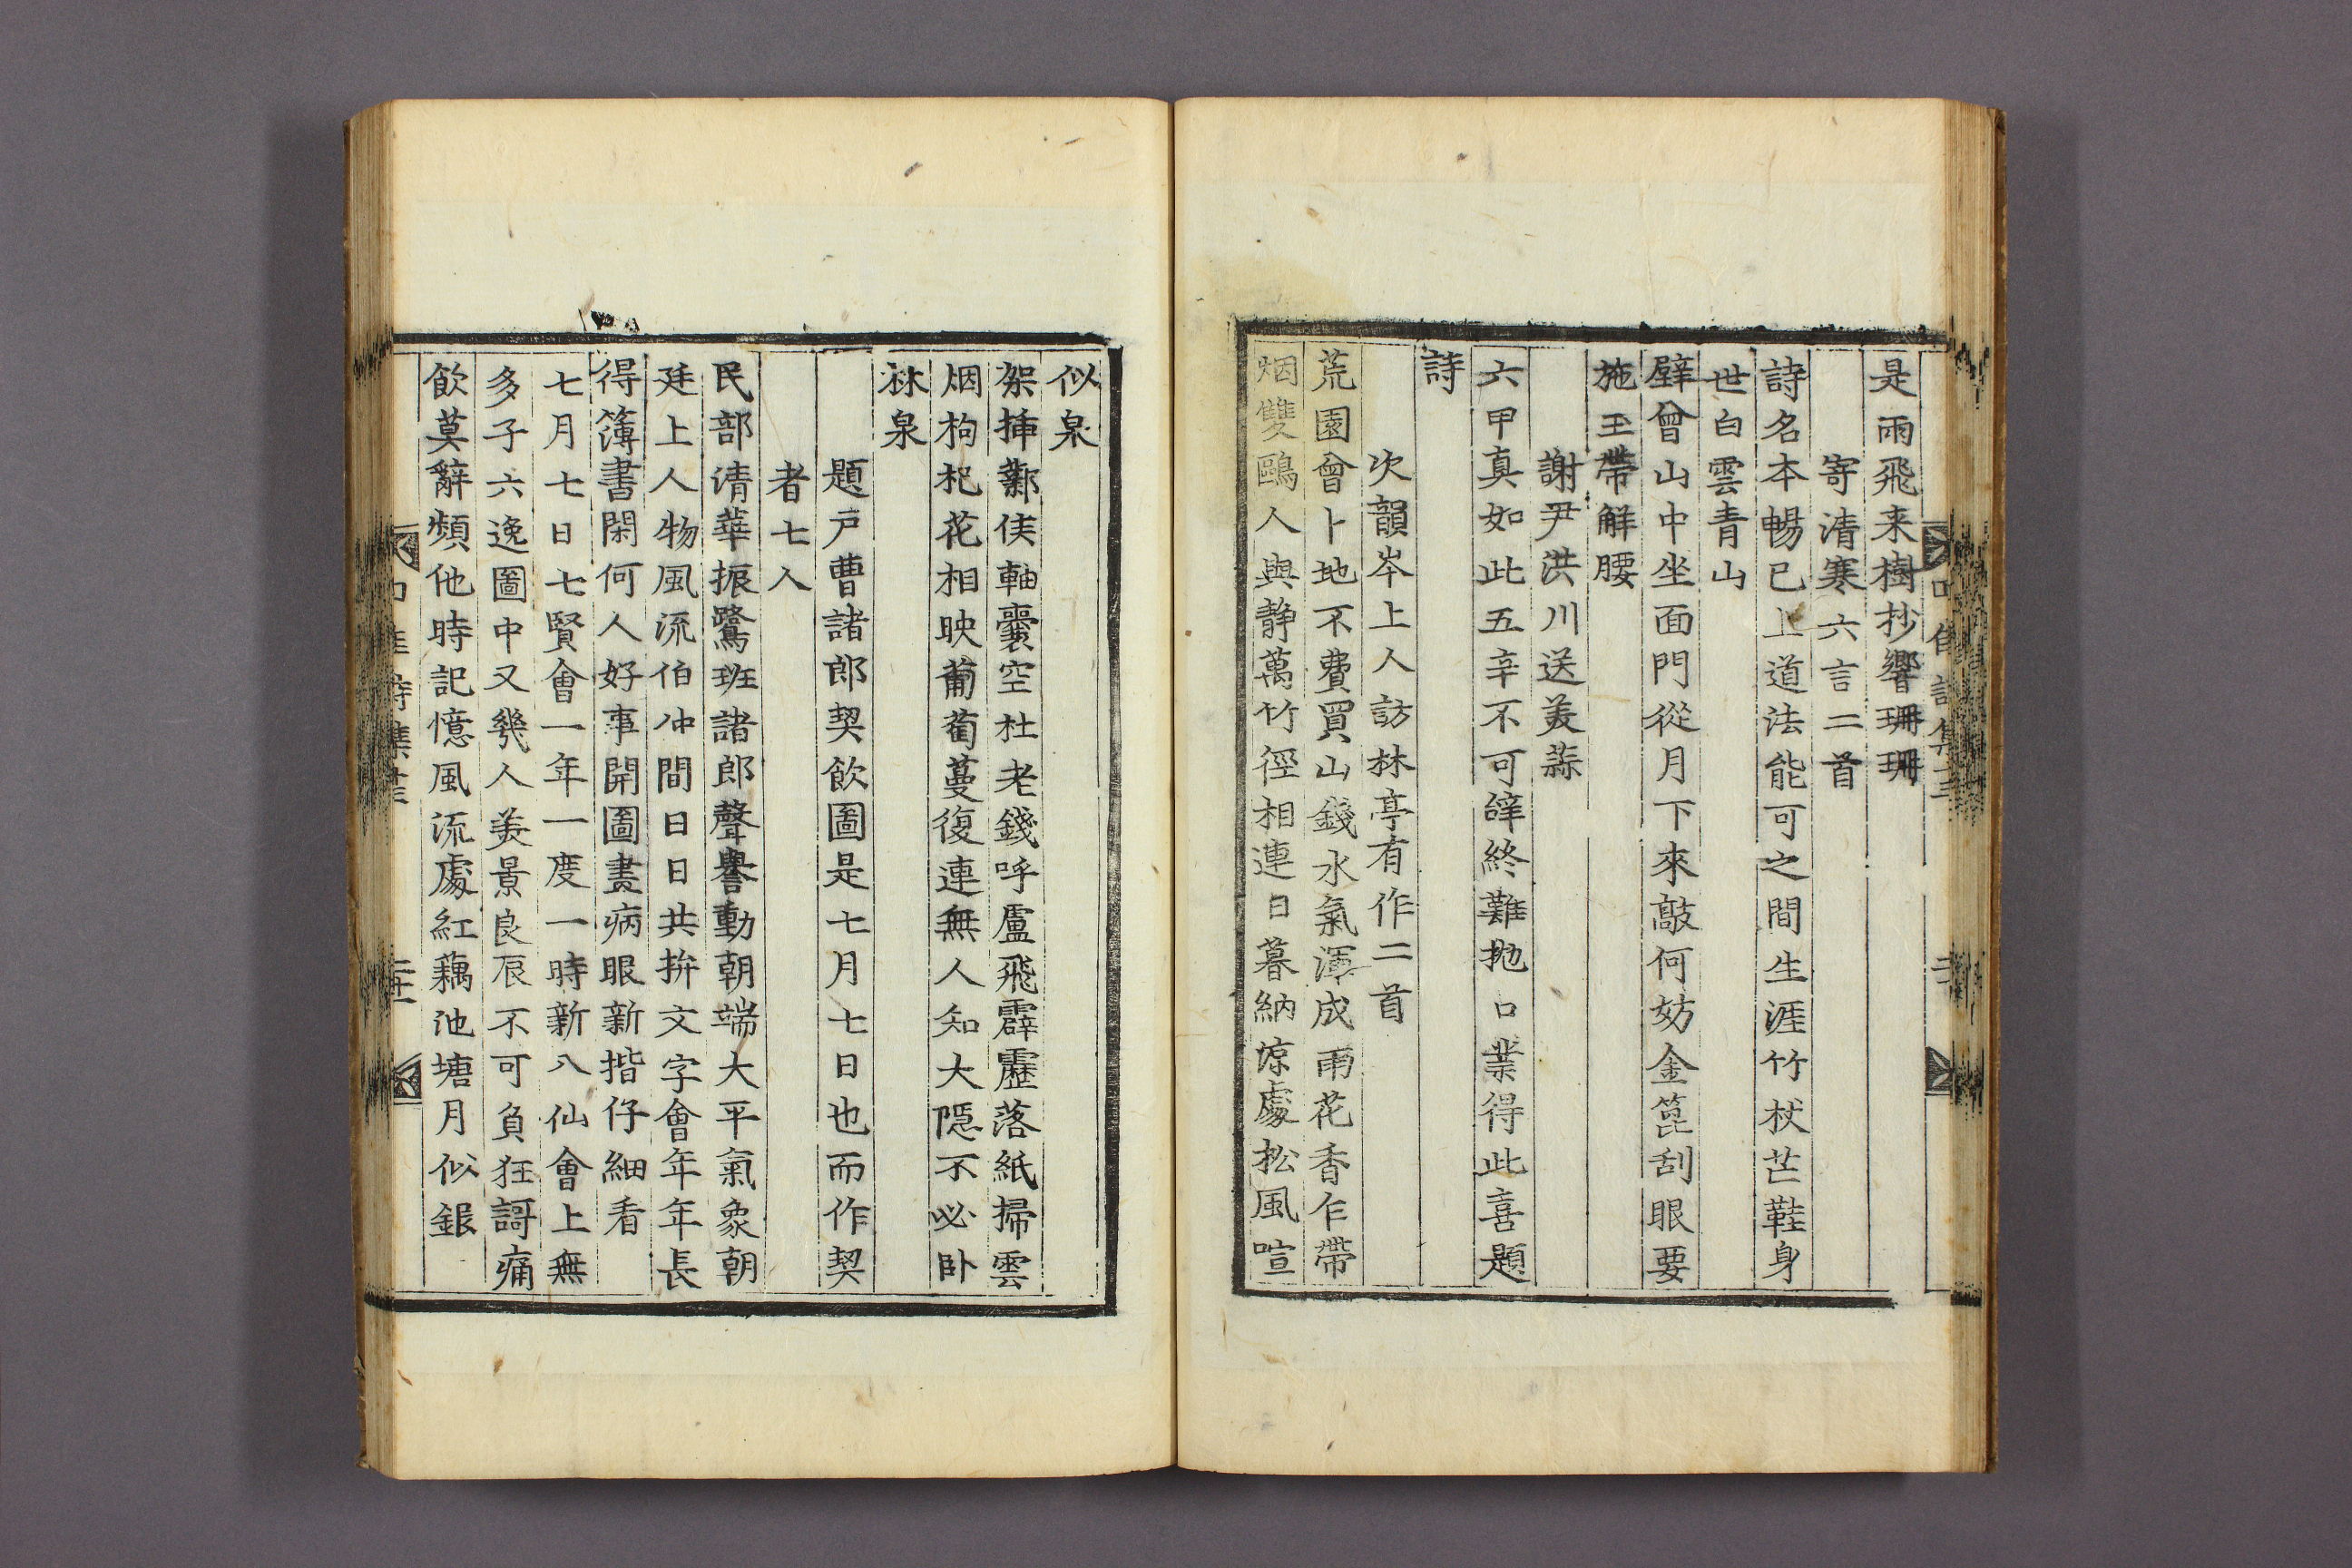 是雨飛来樹抄響珊珊
寄清寒六言二首
詩名本暢已上道法能可之間生涯竹杖芒鞋身
世白雲青山
壁曾山中坐面門從月下來敲何妨金篦刮眼要
施玉帶解腰
謝尹洪川送羙蒜
六甲真如此五辛不可辝終難抛口業得此喜題
詩
次韻岑上人訪林亭有作二首
荒園會卜地不費買山錢水氣渾成雨花香乍帶
烟雙鷗人與静萬竹徑相連日暮納凉處松風喧
似泉
架揷鄴侯軸囊空杜老錢呼盧飛霹靂落紙掃雲
烟枸杞花相映葡萄蔓復連無人知大隠不必卧
林泉
題户曹諸郎契飲圖是七月七日也而作契
者七人
民部清華振鷺班諸郎聲譽動朝端大平氣象朝
廷上人物風流伯仲間日日共拚文字會年年長
得簿書閑何人好事開圖畫病眼新揩仔細看
七月七日七賢會一年一度一時新八仙會上無
多子六逸圖中又幾人羙景良辰不可負狂謌痛
飲莫辭頻他時記憶風流處紅藕池塘月似銀